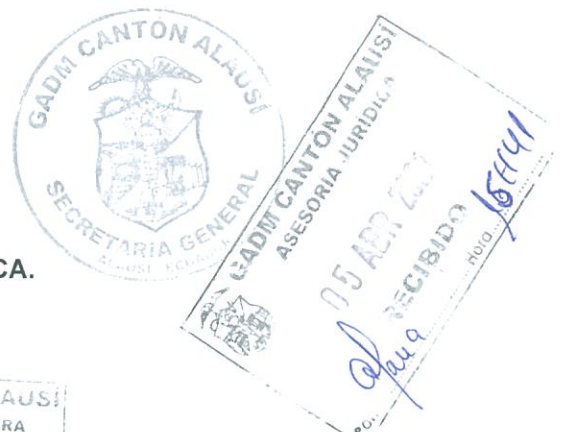 GADM CANTON ALAUSÍ
SECRETARIA GENERAL
ALAUSÍ - ECUADOR
GADM CANTON ALAUSÍ
ASESORIA JURIDICA
05 ABR
RECIBIDO
Hora 15H41
Por:
CA.
AUSÍ
RA